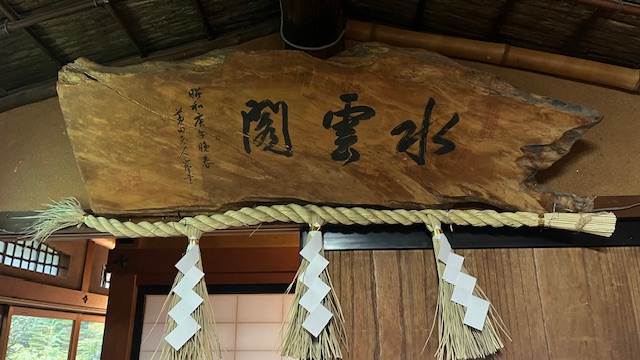 水雲閣
昭和庚午晩春